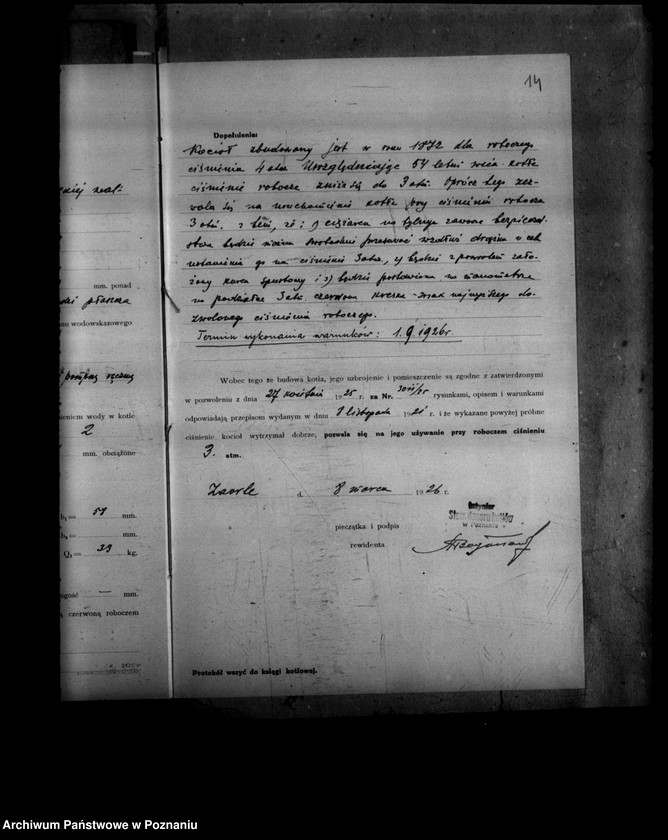 14
Dopełnienie:
Kocioł zbudowany jest w roku 1872 dla roboczego
ciśnienia 4 atm. Uwzględniając 54 letni wiek kotła
ciśnienie robocze zniża się do 3 atm. Oprócz tego zez-
wala się na uruchomienie kotła przy ciśnieniu robocze
3 atm. z tem, że: 1) ciężarek na
będzie przesunąć wzdłuż drążka w celu
ustawienia go na ciśnienie 3 atm, 2) będzie z powrotem zało-
żony kurek spustowy i 3) będzie postawiona na manometrze
na podziałce 3 atm. czerwona kreska - znak najwyższego do-
zwolonego ciśnienia roboczego.
Termin wykonania warunków: 1.9.1926r.
Wobec tego że budowa kotła, jego uzbrojenie i pomieszczenie są zgodne z zatwierdzonymi
w pozwoleniu z dnia 27 1925 r. za Nr. rysunkami, opisem i warunkami
odpowiadają przepisom wydanym w dniu 8 listopada 1921 r. i że wykazane powyżej próbne
ciśnienie kocioł wytrzymał dobrze, pozwala się na jego używanie przy roboczem ciśnieniu
3. atm.
d. 8 marca 1926 r.
Inżynier
Stow. dozoru kotłów
w Poznaniu
pieczątka i podpis
rewidenta
Protokół wszyć do księgi kotłowej.
mm. ponad
płaszcza
wodowskazowego
ręczny
wody w kotle
2
mm. obciążone
b₁ = 51 mm.
b₂ = mm.
Q₁ = 33 kg.
— mm.
czerwoną roboczem
Archiwum Państwowe w Poznaniu